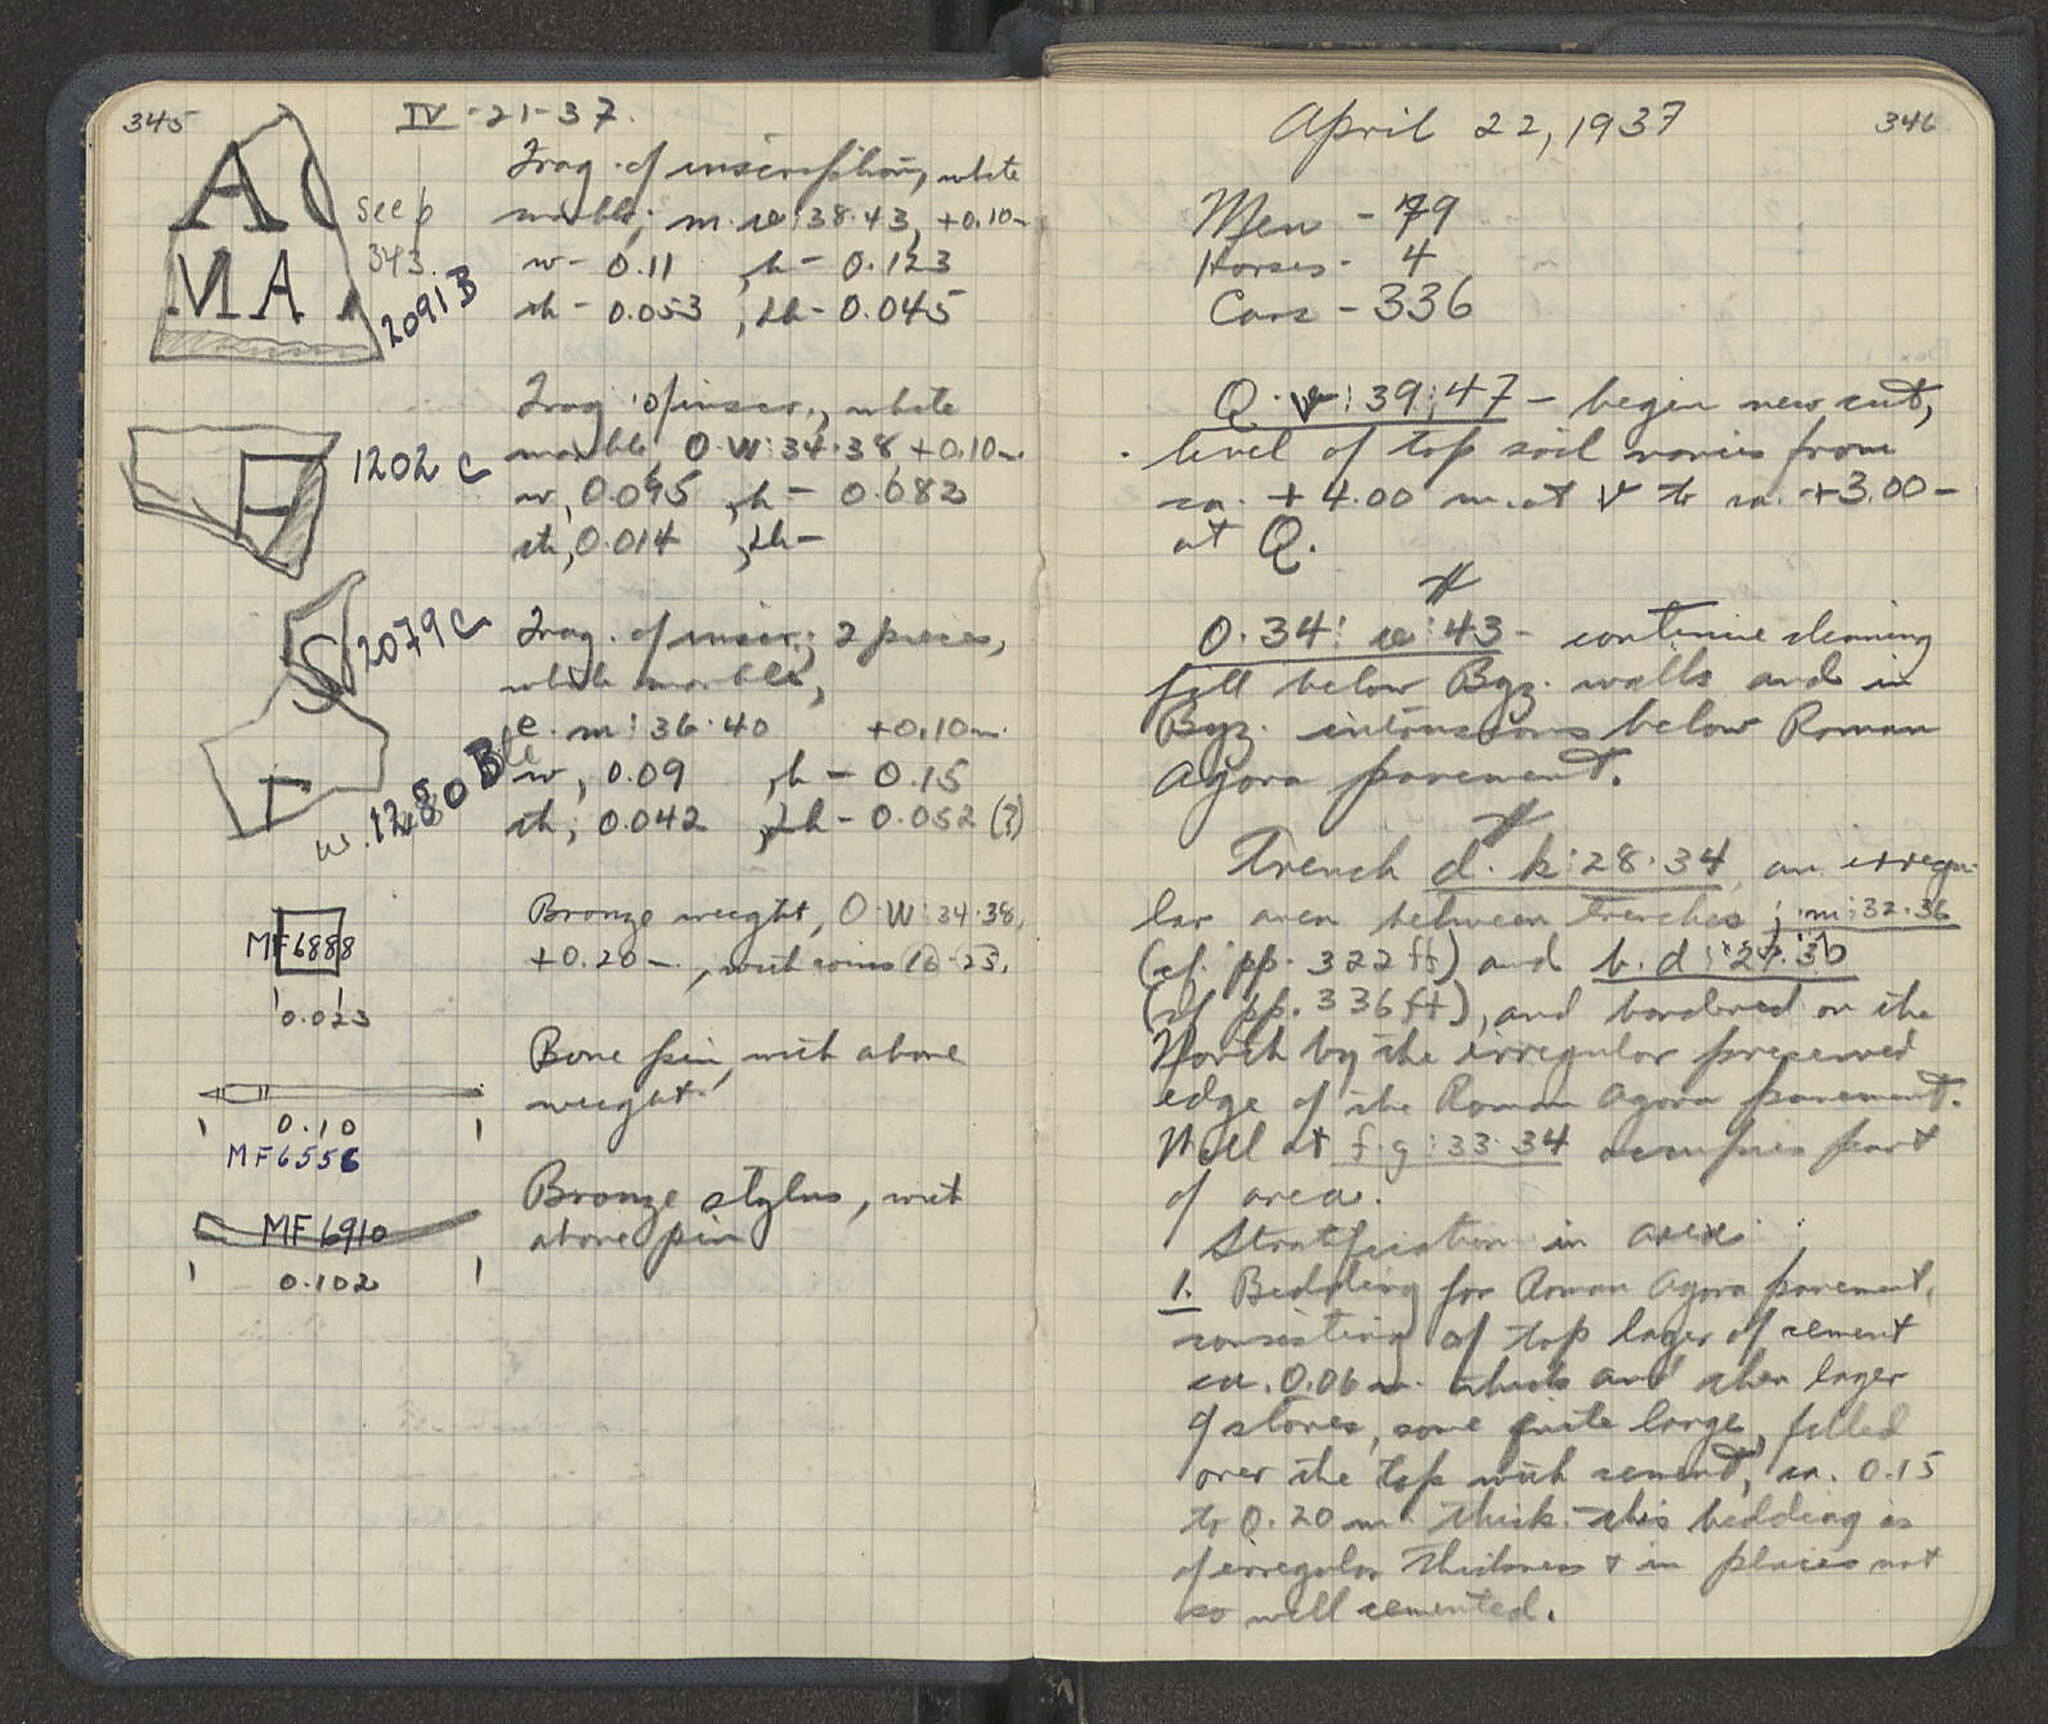 345
IV-21-37.
A(
MA
see p
343.
2091 B
Frag. of inscription, white
marble, m.w:38.43, +0.10m
w- 0.11, h- 0.123
th- 0.053, lh- 0.045
1202 C
Frag. of inscr., white
marble, O.W:34.38, +0.10m.
w, 0.095, h- 0.082
th, 0.014, lh-
S
2079 C
Γ
w. 1280 B
Frag. of inscr; 2 pieces,
white marble,
e.m:36.40 +0.10m.
w, 0.09, h- 0.15
th, 0.042, lh- 0.052 (?)
MF 6888
0.023
Bronze weight, O.W:34.38,
+0.20-, with coins 16-23.
0.10
MF 6556
Bone pin, with above
weight.
MF 6910
0.102
Bronze stylus, with
above pin
April 22, 1937
346
Men - 79
Horses - 4
Cars - 336
Q.V:39:47- begin new cut,
level of top soil varies from
ca. +4.00 m. at V to ca. +3.00-
at Q.
O.34: :43- continue cleaning
fill below Byz. walls and in
Byz. intrusions below Roman
Agora pavement.
Trench d.k:28.34, an irregu-
lar area between trenches j.m:32.36
(cf. pp. 322ff) and b.d:27.30
(cf pp. 336ff), and bordered on the
North by the irregular preserved
edge of the Roman Agora pavement.
Well at f.g:33.34 occupies part
of area.
Stratification in area:
1. Bedding for Roman Agora pavement,
consisting of top layer of cement
ca. 0.06 m. thick and then layer
of stones, some quite large, filled
over the top with cement, ca. 0.15
to 0.20 m. thick.- this bedding is
of irregular thickness + in places not
so well cemented.